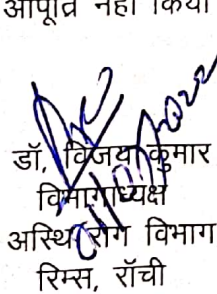 आपूर्ति नहीं किया
डॉ. विजय कुमार
विभागाध्यक्ष
अस्थि रोग विभाग
रिम्स, राँची